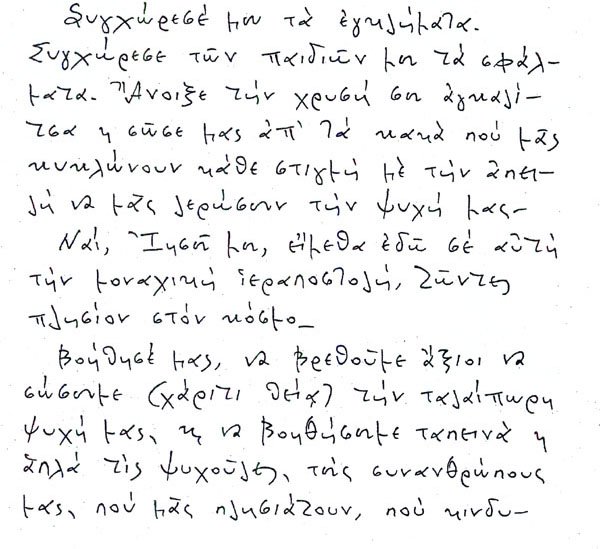 Συγχώρεσέ μου τὰ ἐγκλήματα.
Συγχώρεσε τῶν παιδιῶν μου τὰ σφάλ-
ματα. Ἄνοιξε τήν χρυσή σου ἀγκαλί-
τσα κ σῶσε μας ἀπ' τὰ κακὰ πού μᾶς
κυκλώνουν κάθε στιγμή μὲ τήν ἀπει-
λή νὰ μᾶς λερώσουν τήν ψυχή μας-
Ναί, Ἰησοῦ μου, εἴμεθα ἐδῶ σέ αὐτή
τήν μοναχική ἱεραποστολή, ζῶντες
πλησίον στόν κόσμο_
Βοήθησέ μας, νὰ βρεθοῦμε ἄξιοι νὰ
σώσουμε (χάριτι θεία) τήν ταλαίπωρη
ψυχή μας, κ νὰ βοηθήσουμε ταπεινὰ κ
ἁπλὰ τὶς ψυχοῦλες, τούς συνανθρώπους
μας, πού μᾶς πλησιάζουν, πού κινδυ-